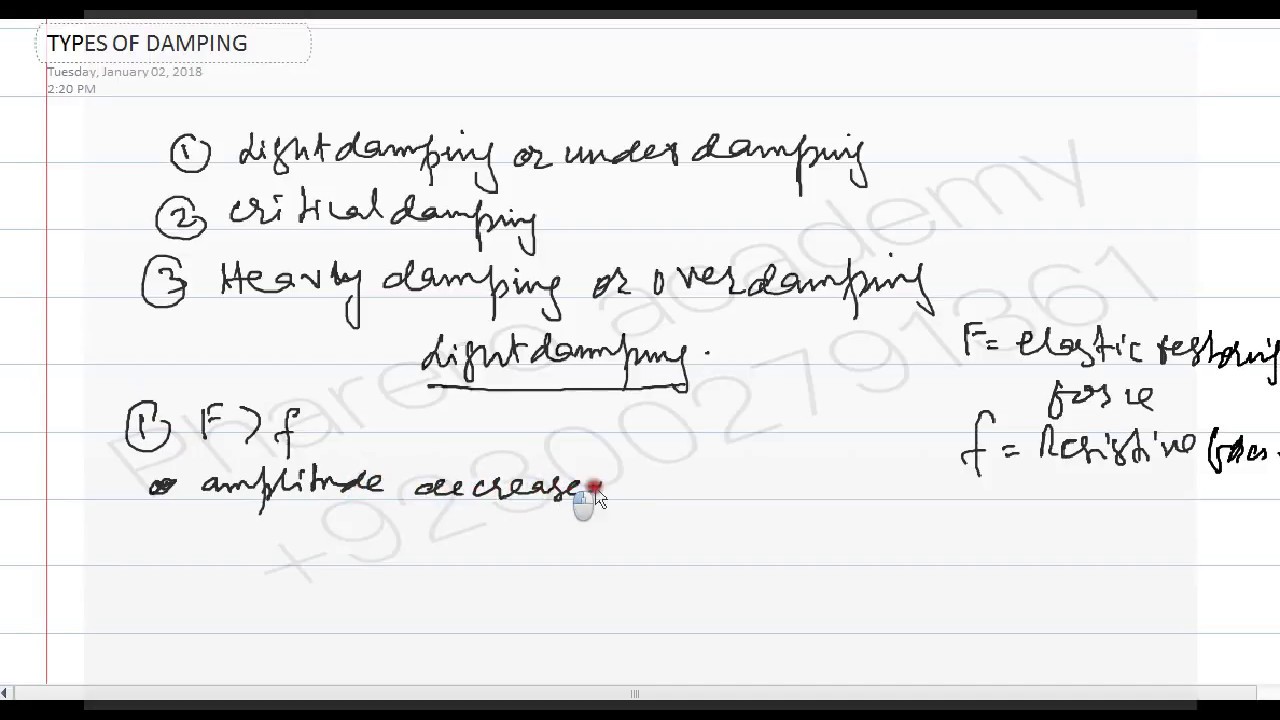 TYPES OF DAMPING
Tuesday, January 02, 2018
2:20 PM
① Light damping or under damping
② critical damping
③ Heavly damping or over damping
Light damping.
F = elastic restoring
force
① F > f
f = Resistive
• amplitude decrease
Phareic academy
+923002791361